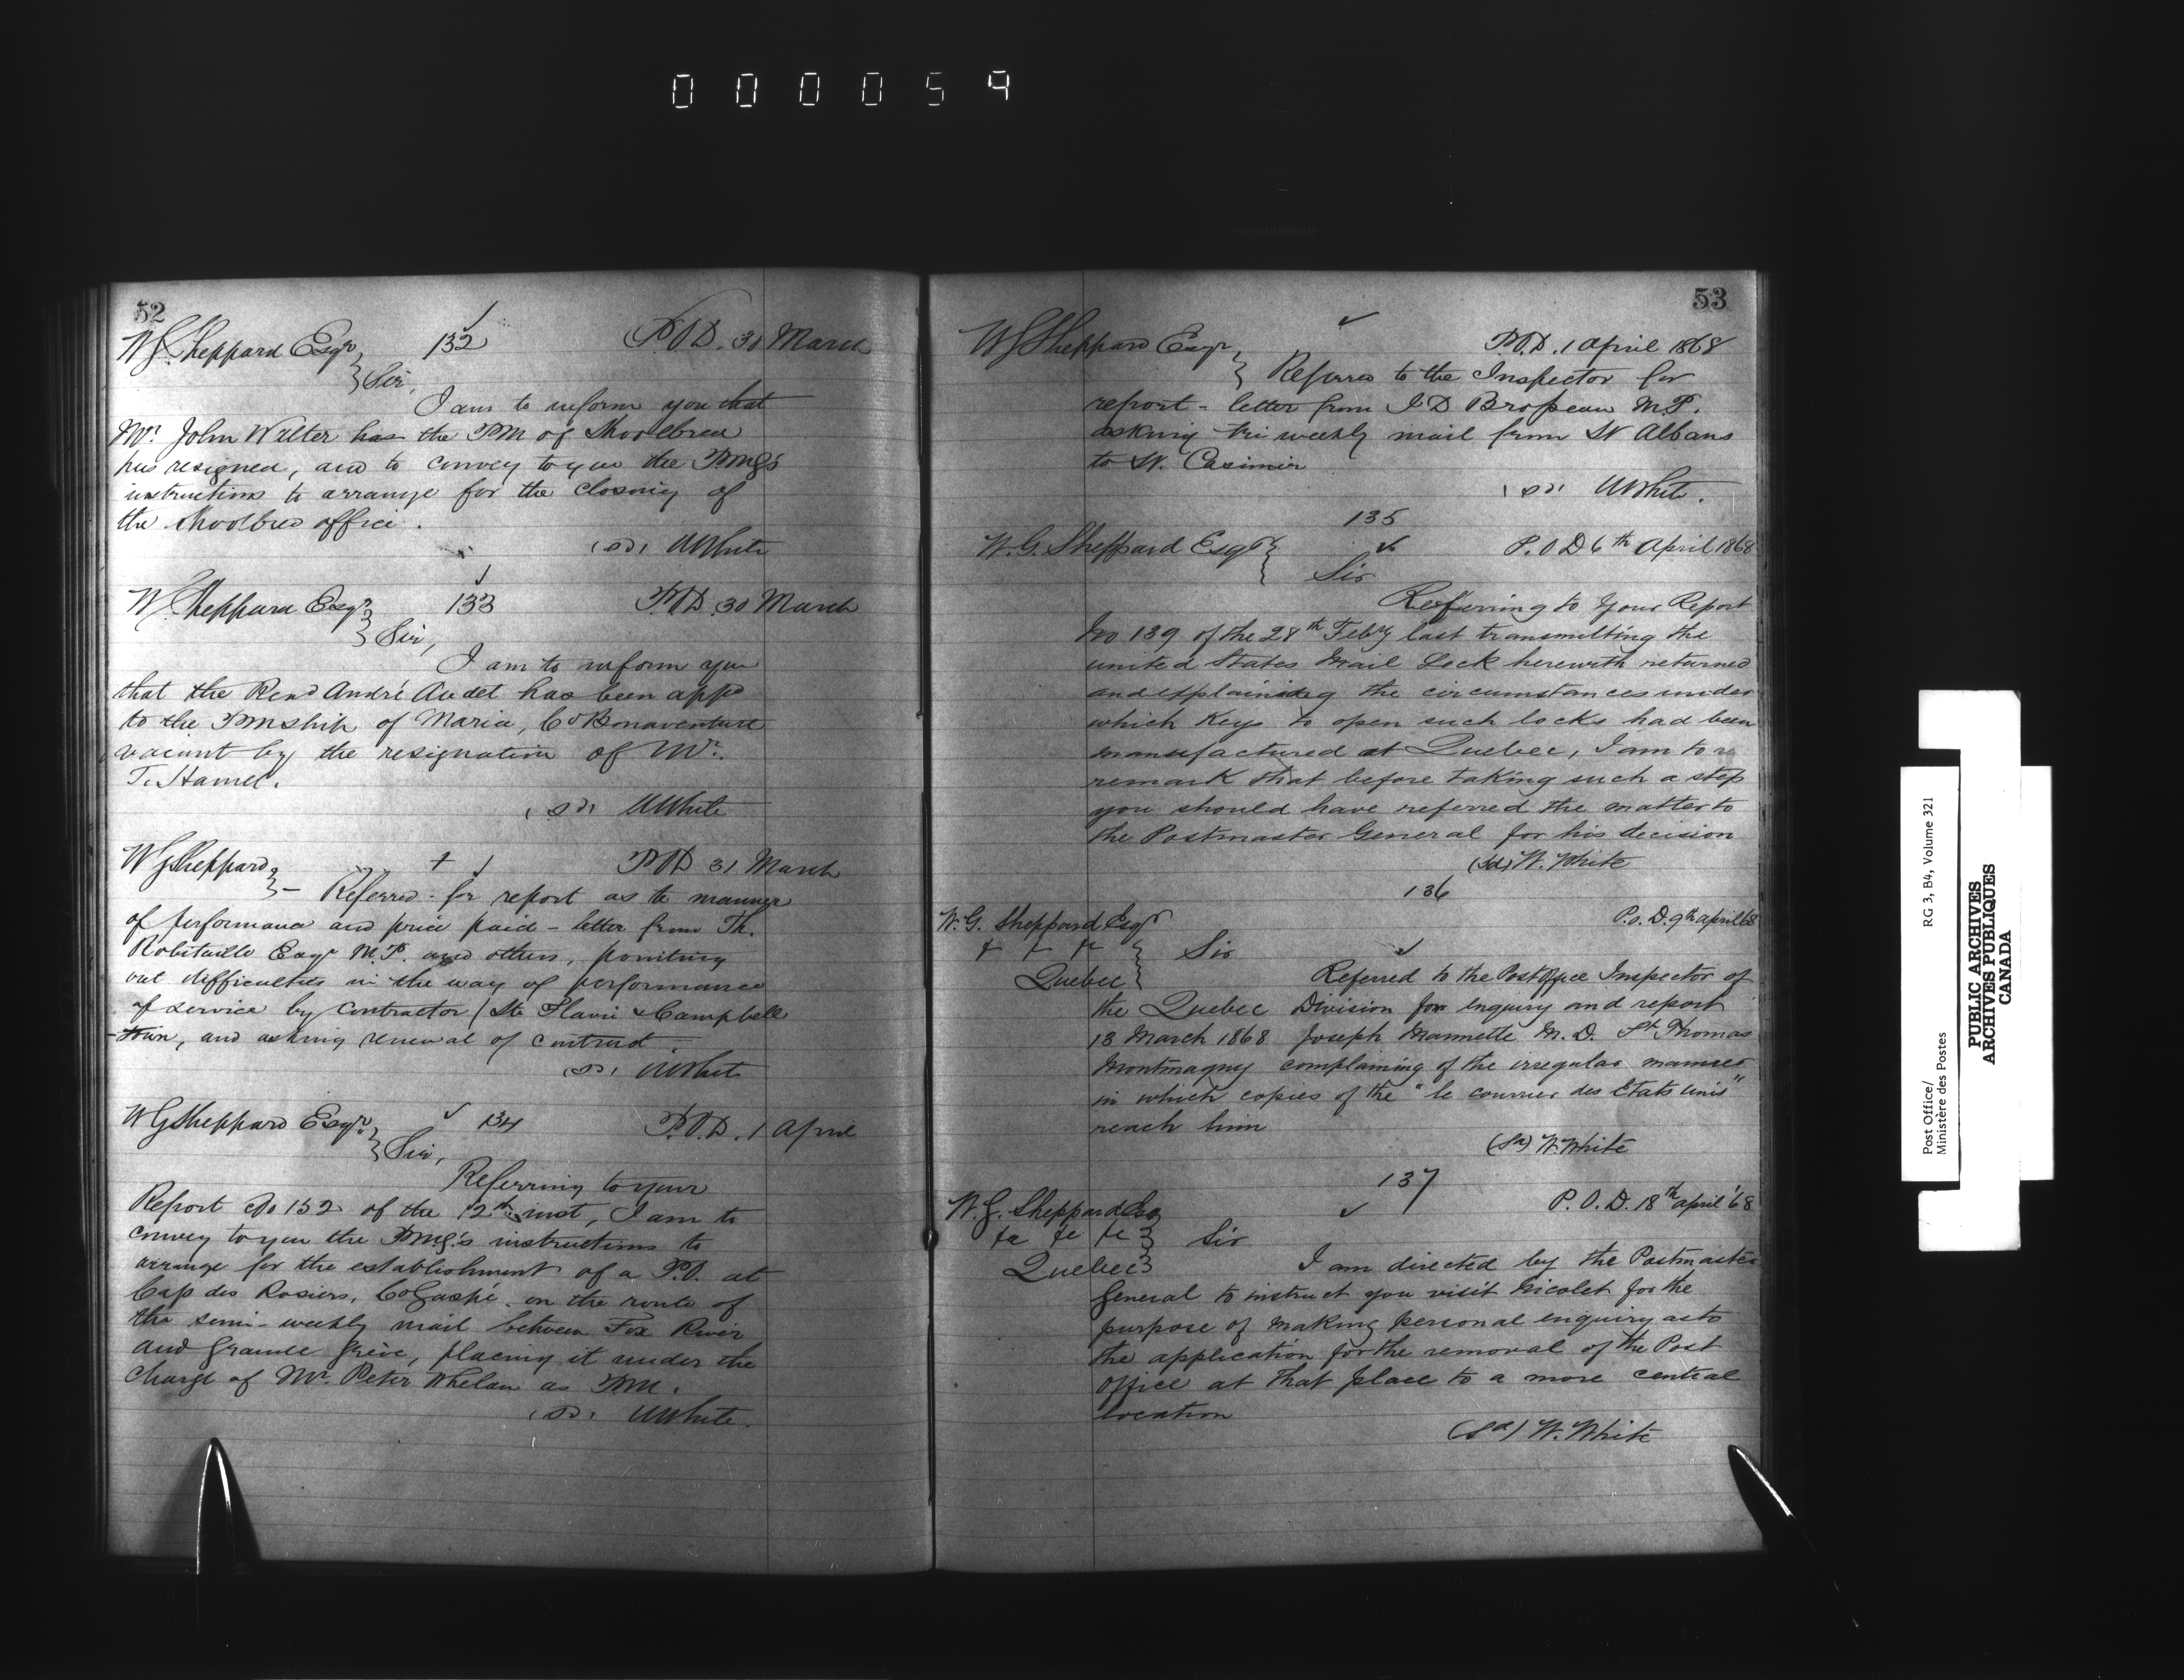 000059
52
W G Sheppard Esqr, 132 P.O.D. 30 March
Sir,
I am to inform you that
Mr. John Walter has the PM of Shoolbred
has resigned, and to convey to you the PMG's
instructions to arrange for the closing of
the Shoolbred office.
(sd) W White
W Sheppard Esqr 133 P.O.D. 30 March
Sir,
I am to inform you
that the Revd André Audet has been appd
to the PMship of Maria, Co Bonaventure
vacant by the resignation of Mr.
T. Hamel.
(sd) W White
W G Sheppard, + P.O.D. 31 March
Referred for report as to manner
of performance and price paid - letter from Th.
Robitaille Esqr M.P. and others, pointing
out difficulties in the way of performance
of service by Contractor / Ste Flavie & Campbell
-town, and asking renewal of contract.
(sd) W White
W G Sheppard Esqr. 134 P.O.D. 1 April
Sir,
Referring to your
Report No 152 of the 12th inst, I am to
convey to you the PMG's instructions to
arrange for the establishment of a P.O. at
Cap des Rosiers, Co Gaspé on the route of
the semi-weekly mail between Fox River
and Grande Grève, placing it under the
charge of Mr. Peter Whelan as PM.
(sd) W White.
53
W G Sheppard Esqr, P.O.D. 1 April 1868
Referred to the Inspector for
report - letter from J D Brosseau M.P.
asking tri weekly mail from St Albans
to St. Casimir
(sd) W White.
135
W. G. Sheppard Esqr P.O D 6th April 1868
Sir
Referring to Your Report
No 139 of the 28th Feby last transmitting the
united States Mail Lock herewith returned
and explaining the circumstances under
which Keys to open such locks had been
manufactured at Quebec, I am to re
remark that before taking such a step
you should have referred the matter to
the Postmaster General for his decision
(Sd) W. White
136
W. G. Sheppard Esqr P.O.D. 9th April 68
Sir
Quebec Referred to the Post Office Inspector of
the Quebec Division for enquiry and report
13 March 1868 Joseph Marmette M.D. St Thomas
Montmagny complaining of the irregular manner
in which copies of the "le courrier des Etats unis"
reach him
(Sd) W. White
137
W. G. Sheppard Esq P.O.D. 18th April '68
&c &c &c Sir
Quebec I am directed by the Postmaster
General to instruct you visit Nicolet for the
purpose of making personal enquiry as to
the application for the removal of the Post
Office at that place to a more central
location
(Sd) W. White
Post Office/
Ministère des Postes
RG 3, B4, Volume 321
PUBLIC ARCHIVES
ARCHIVES PUBLIQUES
CANADA